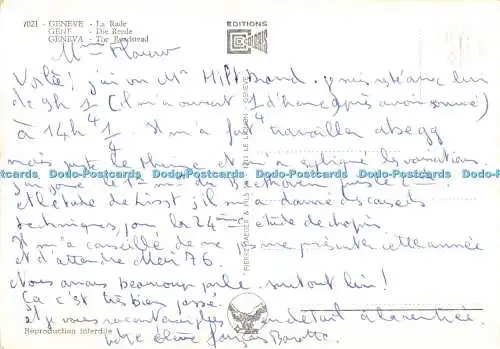 7021 - GENEVE - La Rade
GENF - Die Reede
GENEVA - The Roadstead
EDITIONS
Mme
Voilà! j'ai vu Mr Hiltbrand. je suis resté avec lui
de 9h 1/4 (il m'a ouvert 1/4 d'heure après avoir sonné)
à 14h 1/4. Il m'a fait travailler abegg
mais juste le thème et m'a expliqué les variations.
J'ai joué le 1er de Beethoven puis le 2ème
et l'étude de Liszt, il m'a donné des conseils
techniques, pour la 24ème étude de chopin.
Il m'a conseillé de ne pas me présenter cette année
et d'attendre Mai 76.
Nous avons beaucoup parlé. surtout lui!
Ça c'est très bien passé.
et je vous raconterai en détail à la rentrée.
Reproduction interdite
votre élève François
Dodo-Postcards Dodo-Postcards Dodo-Postcards Dodo-Postcards Dodo-Postcards